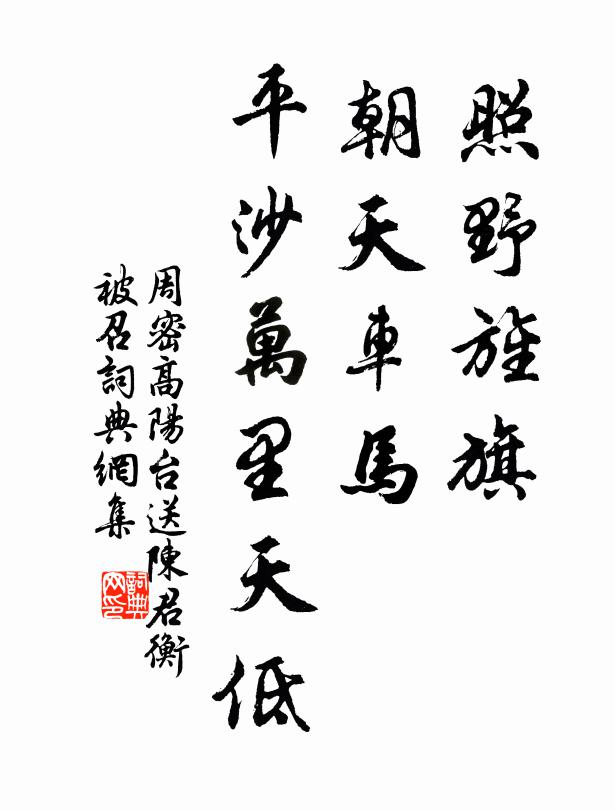 照野旌旗
朝天車馬
平沙萬里天低
周密高陽台送陳君衡
被召詞典網集
詞典网印